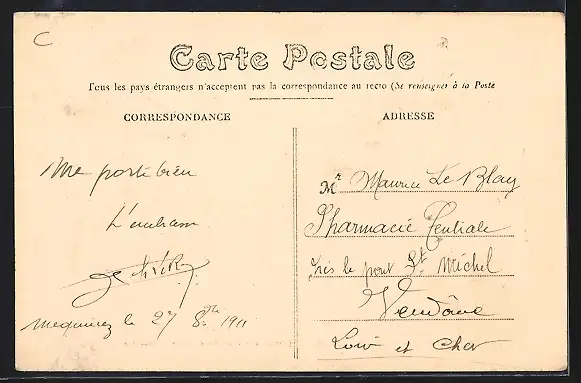 C
Carte Postale
Tous les pays étrangers n'acceptent pas la correspondance au recto (Se renseigner à la Poste
CORRESPONDANCE
ADRESSE
Me porte bien
Mr Maurice Le Blay
Pharmacie Centrale
Près le pont St Michel
Vendôme
Loir et Cher
Mequinez le 27 8bre 1911